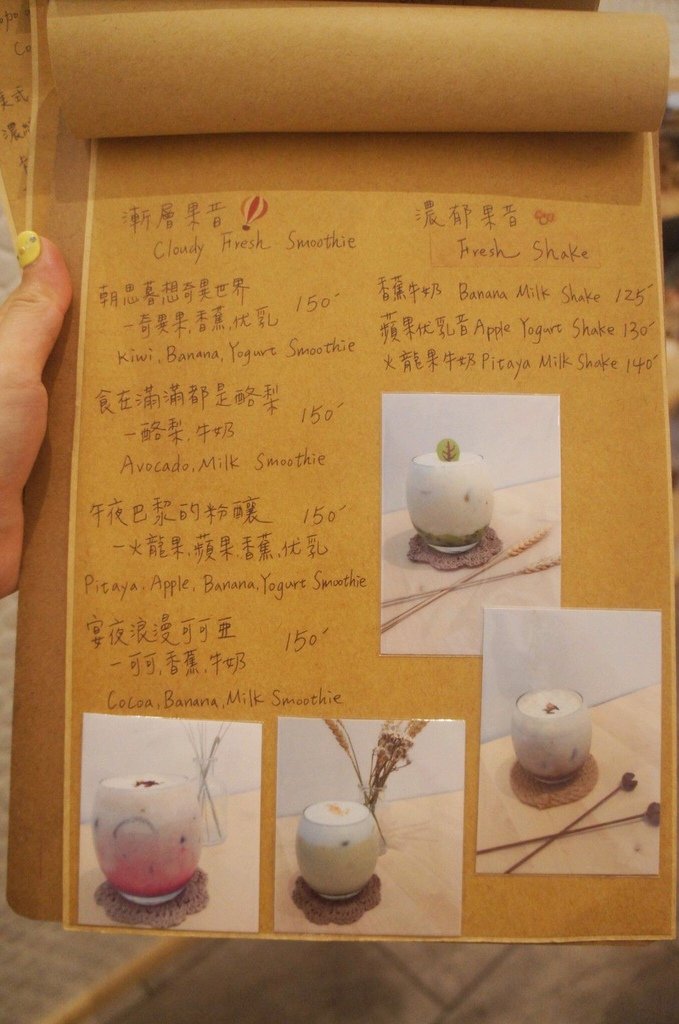 漸層果昔
Cloudy Fresh Smoothie
朝思暮想奇異世界 150
－奇異果,香蕉,优乳
Kiwi, Banana, Yogurt Smoothie
食在滿滿都是酪梨 150
－酪梨,牛奶
Avocado, Milk Smoothie
午夜巴黎的粉釀 150
－火龍果,蘋果,香蕉,优乳
Pitaya, Apple, Banana, Yogurt Smoothie
宴夜浪漫可可亞 150
－可可,香蕉,牛奶
Cocoa, Banana, Milk Smoothie
濃郁果昔
Fresh Shake
香蕉牛奶 Banana Milk Shake 125
蘋果优乳昔 Apple Yogurt Shake 130
火龍果牛奶 Pitaya Milk Shake 140